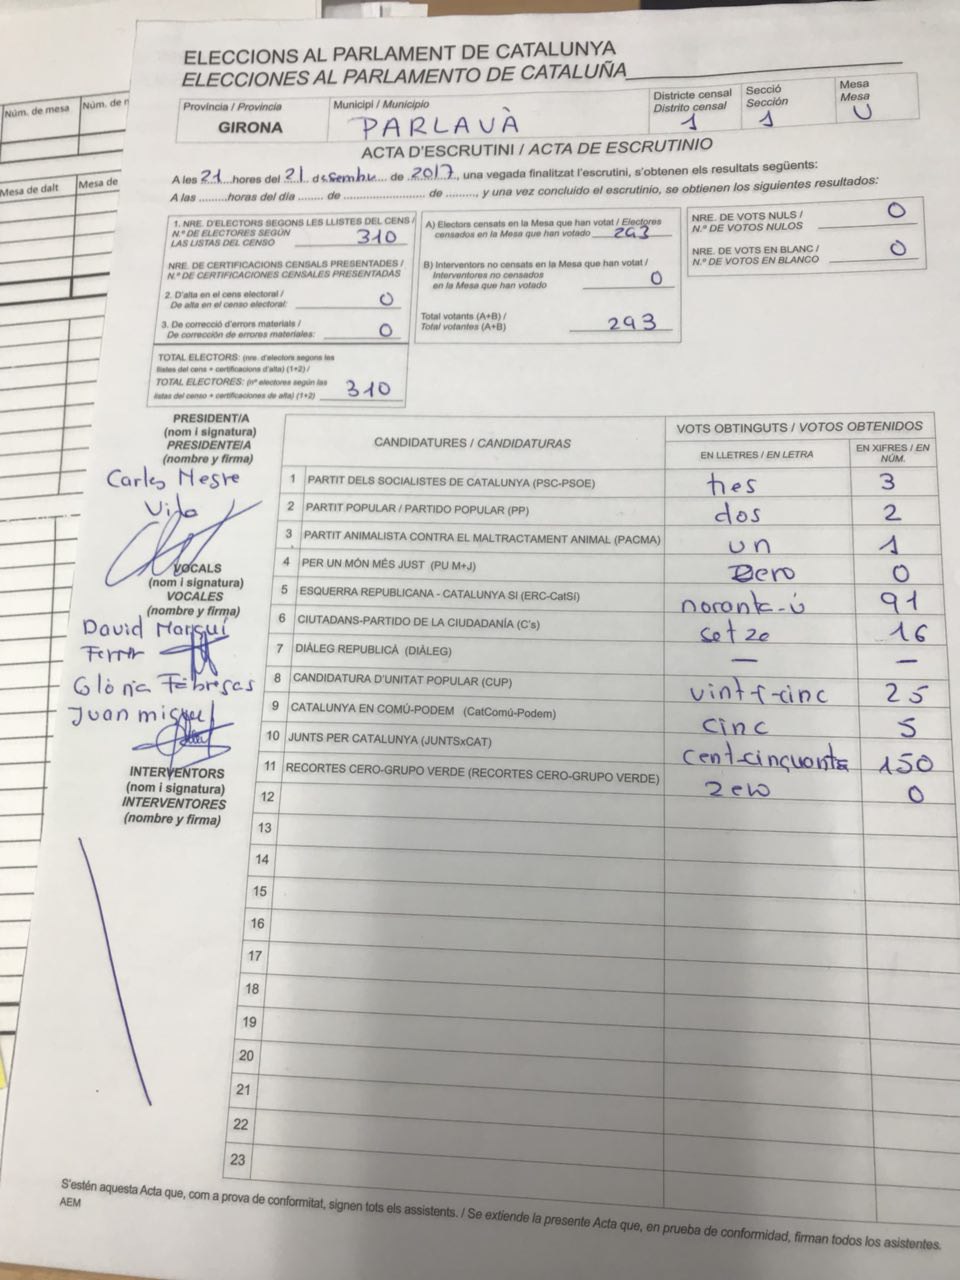 ELECCIONS AL PARLAMENT DE CATALUNYA
ELECCIONES AL PARLAMENTO DE CATALUÑA
Núm. de mesa
Núm. de
Mesa de dalt
Mesa de
Província / Provincia
GIRONA
Municipi / Municipio
PARLAVÀ
Districte censal
Distrito censal
1
Secció
Sección
1
Mesa
Mesa
U
ACTA D'ESCRUTINI / ACTA DE ESCRUTINIO
A les 21 hores del 21 desembre de 2017, una vegada finalitzat l'escrutini, s'obtenen els resultats següents:
A las .........horas del día ........ de ........................ de ........., y una vez concluido el escrutinio, se obtienen los siguientes resultados:
1. NRE. D'ELECTORS SEGONS LES LLISTES DEL CENS /
N.º DE ELECTORES SEGÚN
LAS LISTAS DEL CENSO
310
NRE. DE CERTIFICACIONS CENSALS PRESENTADES /
N.º DE CERTIFICACIONES CENSALES PRESENTADAS
2. D'alta en el cens electoral /
De alta en el censo electoral:
0
3. De correcció d'errors materials /
De corrección de errores materiales:
0
TOTAL ELECTORS: (nre. d'electors segons les
llistes del cens + certificacions d'alta) (1+2) /
TOTAL ELECTORES: (nº electores según las
listas del censo + certificaciones de alta) (1+2)
310
A) Electors censats en la Mesa que han votat / Electores
censados en la Mesa que han votado
293
B) Interventors no censats en la Mesa que han votat /
Interventores no censados
en la Mesa que han votado
0
Total votants (A+B) /
Total votantes (A+B)
293
NRE. DE VOTS NULS /
N.º DE VOTOS NULOS
0
NRE. DE VOTS EN BLANC /
N.º DE VOTOS EN BLANCO
0
PRESIDENT/A
(nom i signatura)
PRESIDENTE/A
(nombre y firma)
Carles Negre
Vila
VOCALS
(nom i signatura)
VOCALES
(nombre y firma)
David Marquí
Ferrer
Glòria Fàbregas
Juan miguel
INTERVENTORS
(nom i signatura)
INTERVENTORES
(nombre y firma)
CANDIDATURES / CANDIDATURAS
VOTS OBTINGUTS / VOTOS OBTENIDOS
EN LLETRES / EN LETRA
EN XIFRES / EN
NÚM.
1 PARTIT DELS SOCIALISTES DE CATALUNYA (PSC-PSOE) tres 3
2 PARTIT POPULAR / PARTIDO POPULAR (PP) dos 2
3 PARTIT ANIMALISTA CONTRA EL MALTRACTAMENT ANIMAL (PACMA) un 1
4 PER UN MÓN MÉS JUST (PU M+J) zero 0
5 ESQUERRA REPUBLICANA - CATALUNYA SI (ERC-CatSí) noranta-ú 91
6 CIUTADANS-PARTIDO DE LA CIUDADANÍA (C's) setze 16
7 DIÀLEG REPUBLICÀ (DIÀLEG) — —
8 CANDIDATURA D'UNITAT POPULAR (CUP) vint-i-cinc 25
9 CATALUNYA EN COMÚ-PODEM (CatComú-Podem) cinc 5
10 JUNTS PER CATALUNYA (JUNTSxCAT) cent-cinquanta 150
11 RECORTES CERO-GRUPO VERDE (RECORTES CERO-GRUPO VERDE) zero 0
12
13
14
15
16
17
18
19
20
21
22
23
S'estén aquesta Acta que, com a prova de conformitat, signen tots els assistents. / Se extiende la presente Acta que, en prueba de conformidad, firman todos los asistentes.
AEM